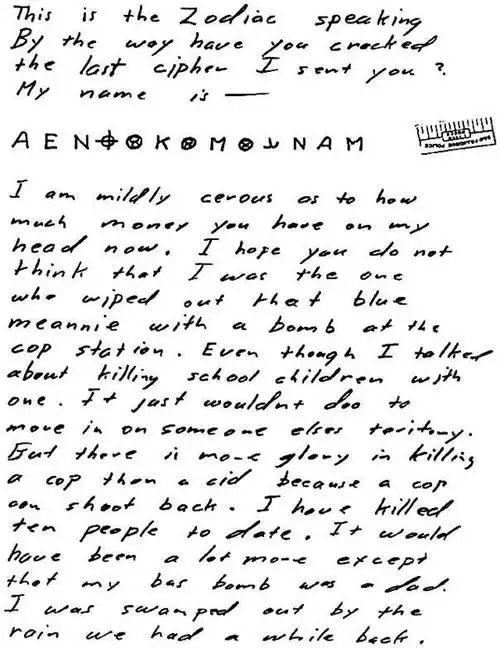 This is the Zodiac speaking
By the way have you cracked
the last cipher I sent you?
My name is —
A E N ⌖ ⊗ K ⊗ M ⊗ N A M
SAN FRANCISCO POLICE
I am mildly cerous as to how
much money you have on my
head now. I hope you do not
think that I was the one
who wiped out that blue
meannie with a bomb at the
cop station. Even though I talked
about killing school children with
one. It just wouldnt doo to
move in on someone elses teritory.
But there is more glory in killing
a cop than a cid because a cop
can shoot back. I have killed
ten people to date. It would
have been a lot more except
that my bas bomb was a dad.
I was swamped out by the
rain we had a while back.